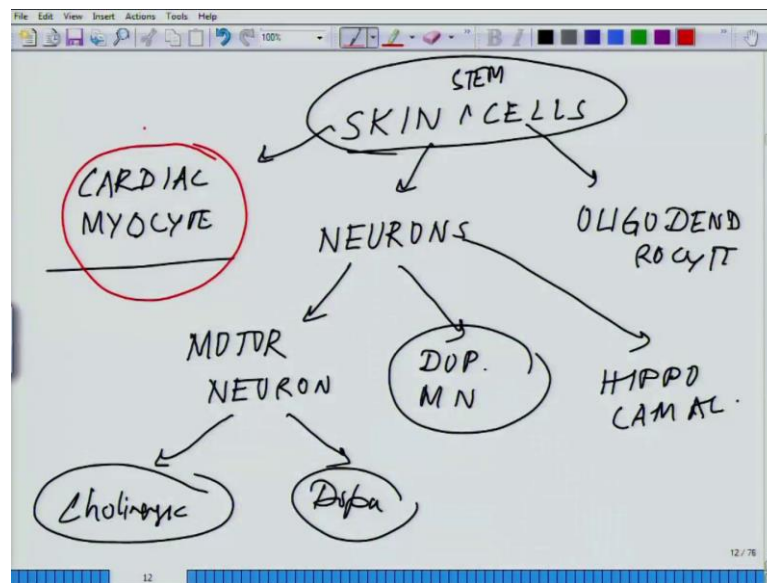 File Edit View Insert Actions Tools Help
100%
B I
STEM
SKIN ^ CELLS
CARDIAC
MYOCYTE
NEURONS
OLIGODEND
ROCYTE
MOTOR
NEURON
DOP.
MN
HIPPO
CAMAL.
Cholinergic
Dopa
12 / 76
12